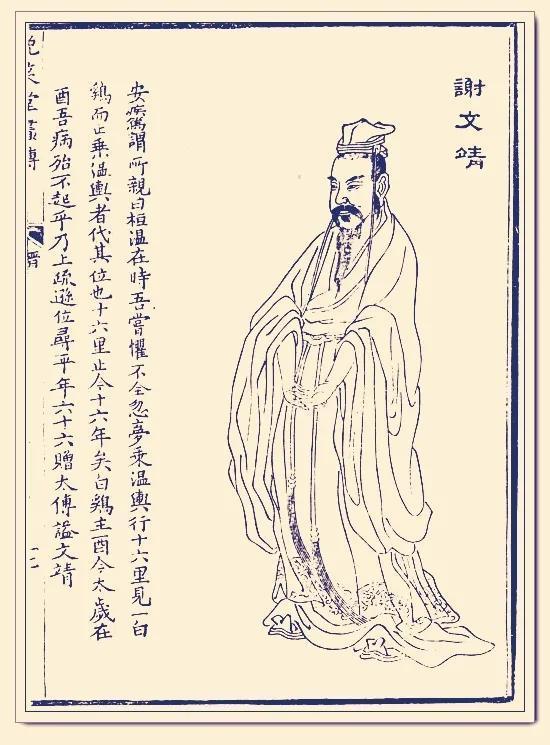 謝文靖
安疾篤謂所親曰桓溫在時吾嘗懼不全忽夢乘溫輿行十六里見一白
鷄而止乘溫輿者代其位也十六里止今十六年矣白鷄主酉今太歲在
酉吾病殆不起乎乃上疏遜位尋卒年六十六贈太傅謚文靖
晚笑堂畫傳
晉